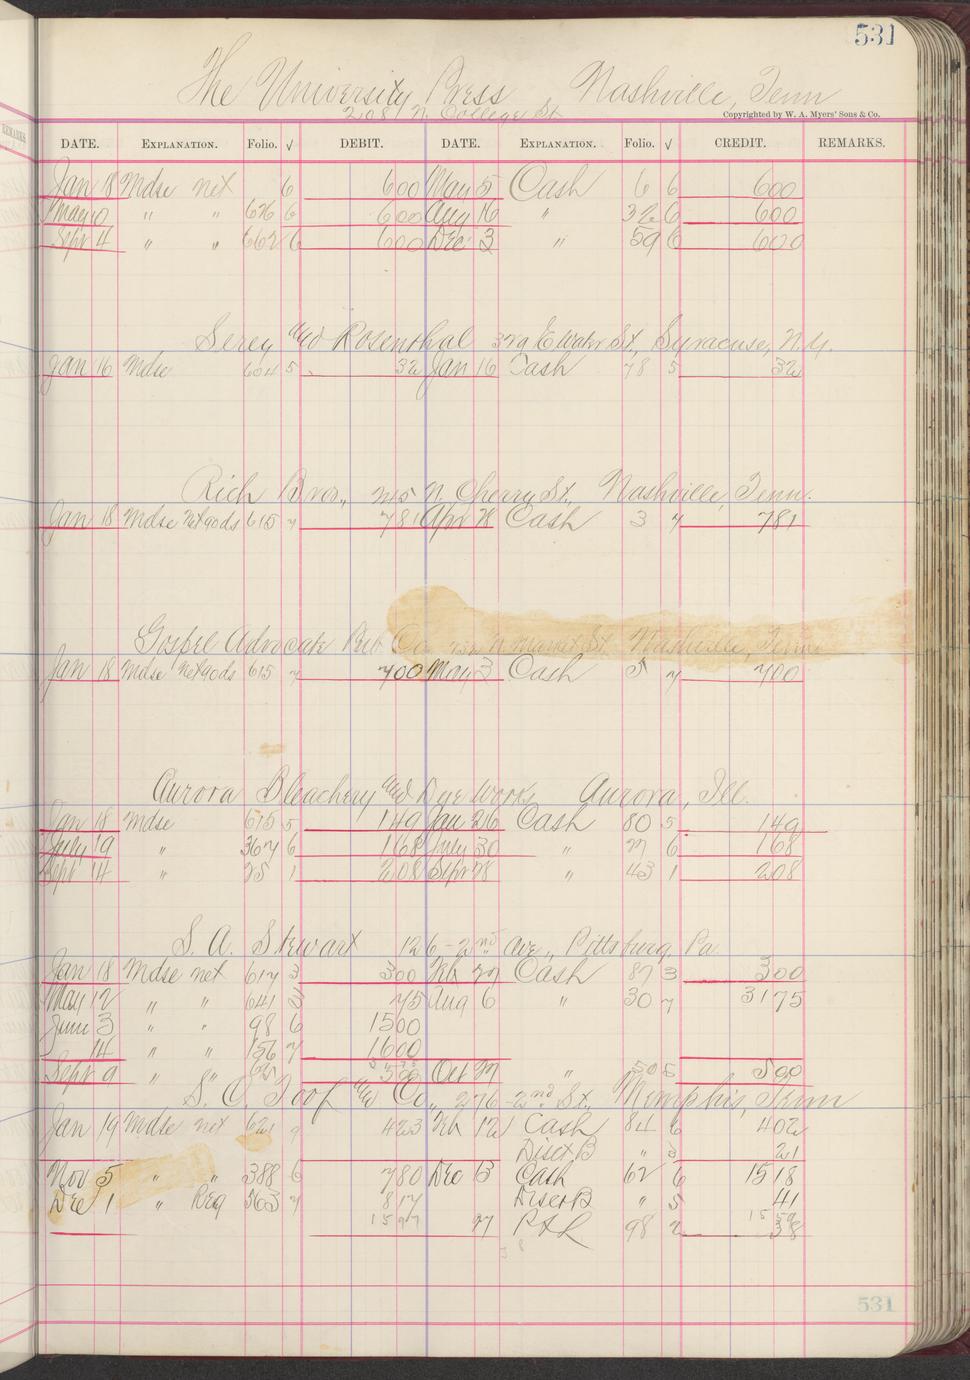 531
The University Press Nashville, Tenn
208 N. College St
Copyrighted by W. A. Myers' Sons & Co.
REMARKS
DATE. EXPLANATION. Folio. √ DEBIT. DATE. EXPLANATION. Folio. √ CREDIT. REMARKS.
Jan 18 Mdse net 6 600 May 5 Cash 6 6 600
May 10 " " 626 6 600 Aug 16 " 32 6 600
Sept 4 " " 662 6 600 Dec 3 " 59 6 600
and Rosenthal E Water St., Syracuse, N.Y.
Jan 16 Mdse 604 5 32 Jan 16 Cash 78 5 32
Rich Bros., 215 N. Cherry St., Nashville, Tenn.
Jan 18 Mdse net 90ds 615 7 781 Apr 28 Cash 3 7 781
Gospel Advocate Pub. Co. 232 N. Market St. Nashville, Tenn.
Jan 18 Mdse net 90ds 615 7 700 May 3 Cash 5 7 700
Aurora Bleachery and Dye Works Aurora, Ill.
Jan 18 Mdse 615 5 149 Jan 26 Cash 80 5 149
July 19 " 367 6 168 July 30 " 27 6 168
Sept 14 " 25 1 208 Sept 28 " 43 1 208
S. A. Stewart 126-2nd Ave., Pittsburg, Pa.
Jan 18 Mdse net 617 3 300 Feb 27 Cash 87 3 300
May 12 " " 641 3 75 Aug 6 " 30 7 3175
June 3 " " 98 6 1500
14 " " 156 7 1600
Sept 9 " " 500 Oct 27 " 50 5 500
S. C. Toof and Co., 276-2nd St., Memphis, Tenn
Jan 19 Mdse net 621 9 423 Feb 12 Cash 84 6 402
Disct B " 3 21
Nov 5 " " 388 6 780 Dec 13 Cash 62 6 1518
Dec 1 " Reg 563 7 817 Disct B " 5 41
1597 27 P&L 98 2 38
1559
531